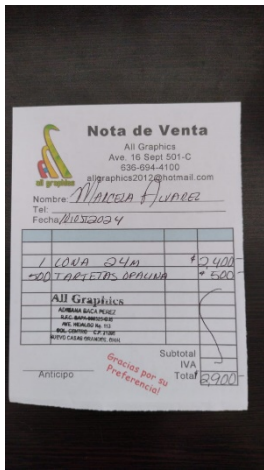 Nota de Venta
All Graphics
Ave. 16 Sept 501-C
636-694-4100
allgraphics2012@hotmail.com
all graphics
Nombre: Marcela Alvarez
Tel:
Fecha
1 LONA 24M $2,400-
500 TARJETAS OPALINA $500-
All Graphics
ADRIANA BACA PEREZ
AVE. HIDALGO No. 113
COL. CENTRO C.P. 31700
NUEVO CASAS GRANDES, CHIH
Gracias por su
Preferencia!
Subtotal
IVA
Anticipo
Total 2,900-